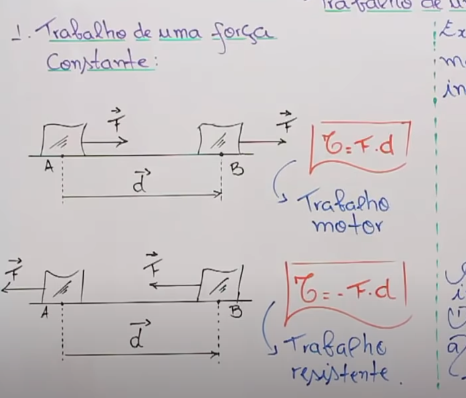 Trabalho de u
1. Trabalho de uma força
Constante:
Ex
m
in
F F
A B
d
τ = F.d
Trabalho
motor
F F
A B
d
τ = - F.d
Trabalho
resistente.
i
a